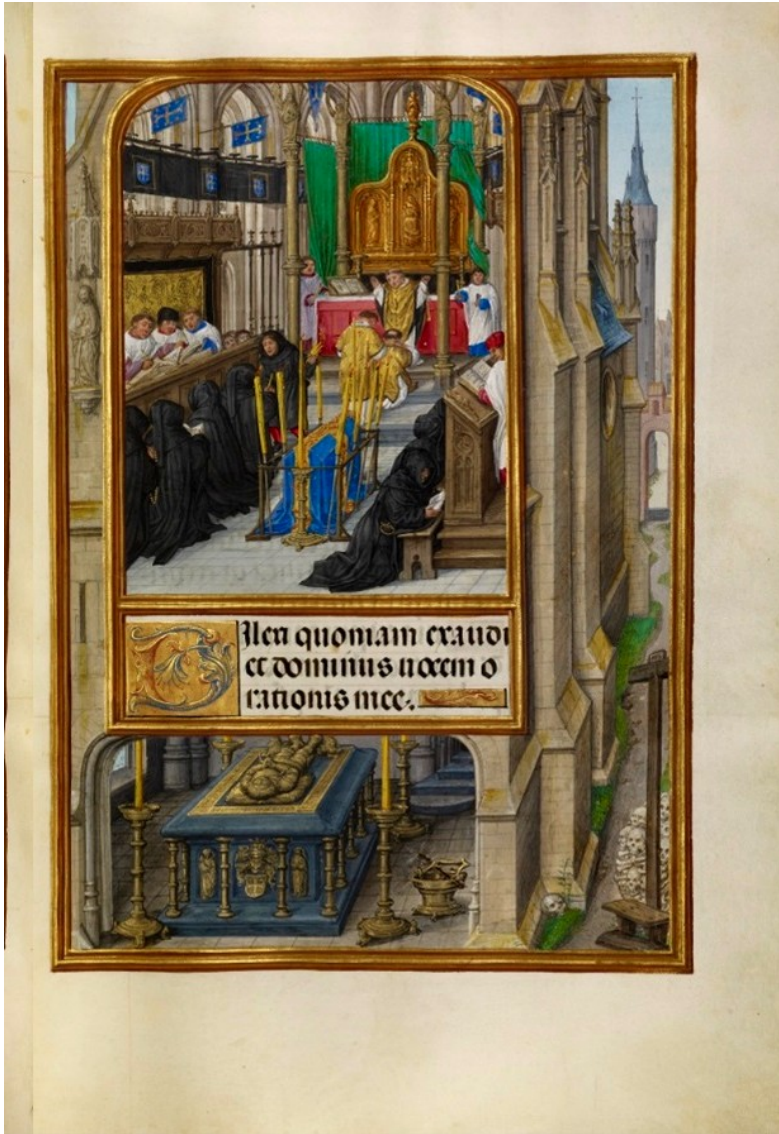 Dilexi quoniam exaudi
et dominus vocem o
rationis mee.